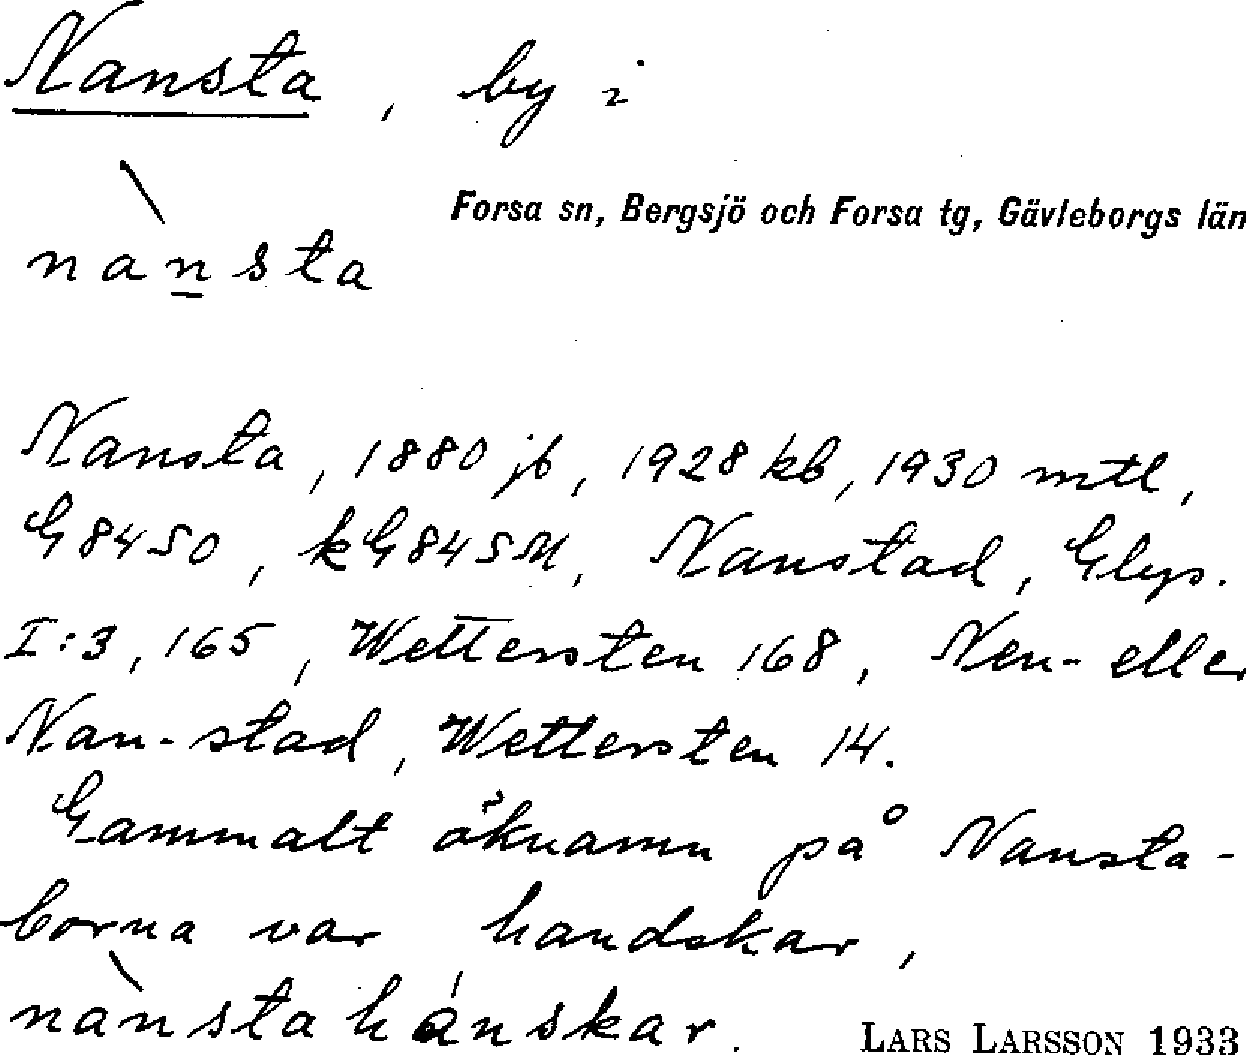 Nansta, by i
Forsa sn, Bergsjö och Forsa tg, Gävleborgs län
nànsta
Nansta, 1880 jb, 1928 kb, 1930 mtl,
G 84 SO, kG 84 SM, Nanstad, Glys.
I:3, 165, Wettersten 168, Nen- eller
Nan-stad, Wettersten 14.
Gammalt öknamn på Nansta-
borna var handskar,
nànsta hánskar.
LARS LARSSON 1933